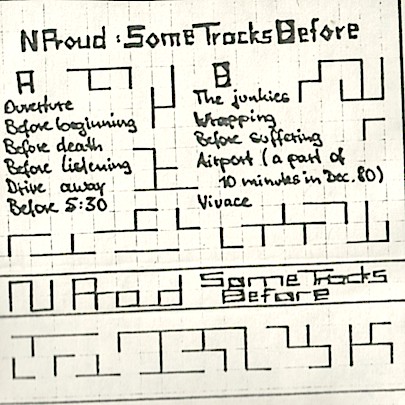 N Proud : Some Tracks Before
A
Ouverture
Before beginning
Before death
Before listening
Drive away
Before 5:30
B
The junkies
Wrapping
Before suffering
Airport (a part of
10 minutes in Dec. 80)
Vivace
N Proud Some Tracks
Before